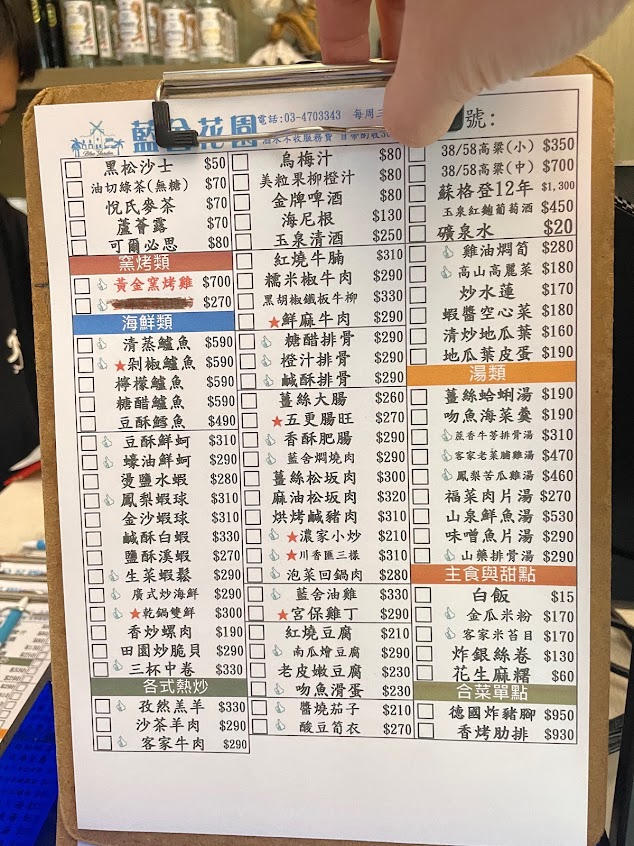 藍舍花園
電話:03-4703343 每周三
號:
Blue Garden
酒水不收服務費
黑松沙士 $50
油切綠茶(無糖) $70
悅氏麥茶 $70
蘆薈露 $70
可爾必思 $80
窯烤類
黃金窯烤雞 $700
$270
海鮮類
清蒸鱸魚 $590
★剁椒鱸魚 $590
檸檬鱸魚 $590
糖醋鱸魚 $590
豆酥鱈魚 $490
豆酥鮮蚵 $310
蠔油鮮蚵 $290
燙鹽水蝦 $280
鳳梨蝦球 $310
金沙蝦球 $310
鹹酥白蝦 $330
鹽酥溪蝦 $270
生菜蝦鬆 $290
廣式炒海鮮 $290
★乾鍋雙鮮 $300
香炒螺肉 $190
田園炒脆貝 $290
三杯中卷 $330
各式熱炒
孜然羔羊 $330
沙茶羊肉 $290
客家牛肉 $290
烏梅汁 $80
美粒果柳橙汁 $80
金牌啤酒 $80
海尼根 $130
玉泉清酒 $250
紅燒牛腩 $310
糯米椒牛肉 $290
黑胡椒鐵板牛柳 $330
★鮮麻牛肉 $290
糖醋排骨 $290
橙汁排骨 $290
鹹酥排骨 $290
薑絲大腸 $260
★五更腸旺 $270
香酥肥腸 $290
藍舍燜燒肉 $290
薑絲松坂肉 $300
麻油松坂肉 $320
烘烤鹹豬肉 $310
★濃家小炒 $210
★川香匯三樣 $310
泡菜回鍋肉 $280
藍舍油雞 $330
★宮保雞丁 $290
紅燒豆腐 $210
南瓜燴豆腐 $290
老皮嫩豆腐 $230
吻魚滑蛋 $230
醬燒茄子 $210
酸豆筍衣 $270
38/58高粱(小) $350
38/58高粱(中) $700
蘇格登12年 $1,300
玉泉紅麴葡萄酒 $450
礦泉水 $20
雞油燜筍 $280
高山高麗菜 $180
炒水蓮 $170
蝦醬空心菜 $180
清炒地瓜葉 $160
地瓜葉皮蛋 $190
湯類
薑絲蛤蜊湯 $190
吻魚海菜羹 $190
蔬香牛蒡排骨湯 $310
客家老菜脯雞湯 $470
鳳梨苦瓜雞湯 $460
福菜肉片湯 $270
山泉鮮魚湯 $530
味噌魚片湯 $290
山藥排骨湯 $290
主食與甜點
白飯 $15
金瓜米粉 $170
客家米苔目 $170
炸銀絲卷 $130
花生麻糬 $60
合菜單點
德國炸豬腳 $950
香烤肋排 $930